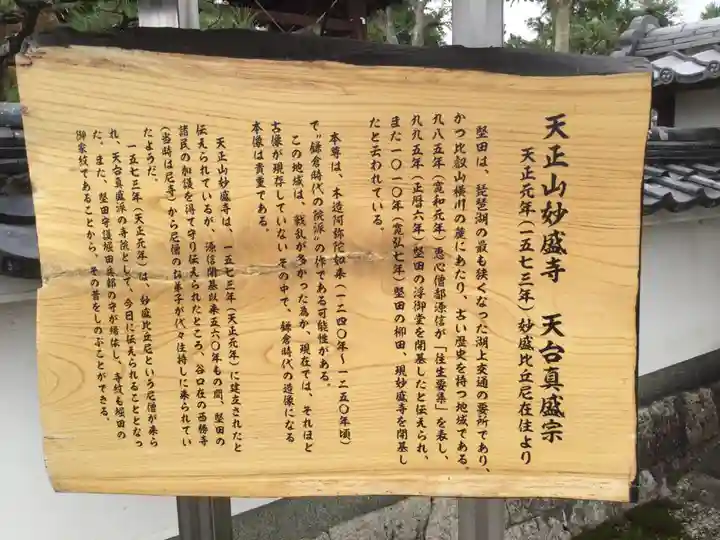 天正山妙盛寺　天台真盛宗
天正元年（一五七三年）妙盛比丘尼在住より
堅田は、琵琶湖の最も狭くなった湖上交通の要所であり、
かつ比叡山横川の麓にあたり、古い歴史を持つ地域である。
九八五年（寛和元年）恵心僧都源信が「往生要集」を表し、
九九五年（正暦六年）堅田の浮御堂を開基したと伝えられ、
また一〇一〇年（寛弘七年）堅田の柳田、現妙盛寺を開基し
たと云われている。
本尊は、木造阿弥陀如来（一二四〇年～一二五〇年頃）
で“鎌倉時代の院派”の作である可能性がある。
この地域は、戦乱が多かった為か、現在では、それほど
古像が現存していない その中で、鎌倉時代の造像になる
本像は貴重である。
天正山妙盛寺は、一五七三年（天正元年）に建立されたと
伝えられているが、源信開基以来五六〇年もの間、堅田の
諸民の加護を得て守り伝えられたところ、谷口在の西勝寺
（当時は尼寺）から尼僧のお弟子が代々住持しに来られてい
たようだ。
一五七三年（天正元年）は、妙盛比丘尼という尼僧が来ら
れ、天台真盛派の寺院として、今日に伝えられることとなっ
た。また、堅田守護堀田兵部の守が帰依し、寺紋も堀田の
御家紋であることから、その昔をしのぶことができる。